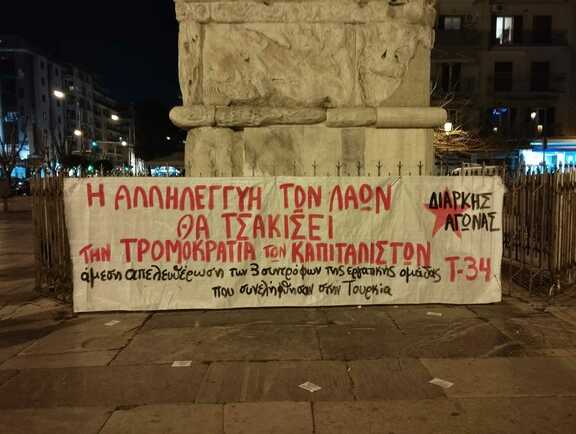 Η ΑΛΛΗΛΕΓΓΥΗ ΤΩΝ ΛΑΩΝ
ΘΑ ΤΣΑΚΙΣΕΙ
την ΤΡΟΜΟΚΡΑΤΙΑ των ΚΑΠΙΤΑΛΙΣΤΩΝ
άμεση απελευθέρωση των 3 συντρόφων της εργατικής ομάδας Τ-34
που συνελήφθησαν στην Τουρκία
ΔΙΑΡΚΗΣ
ΑΓΩΝΑΣ